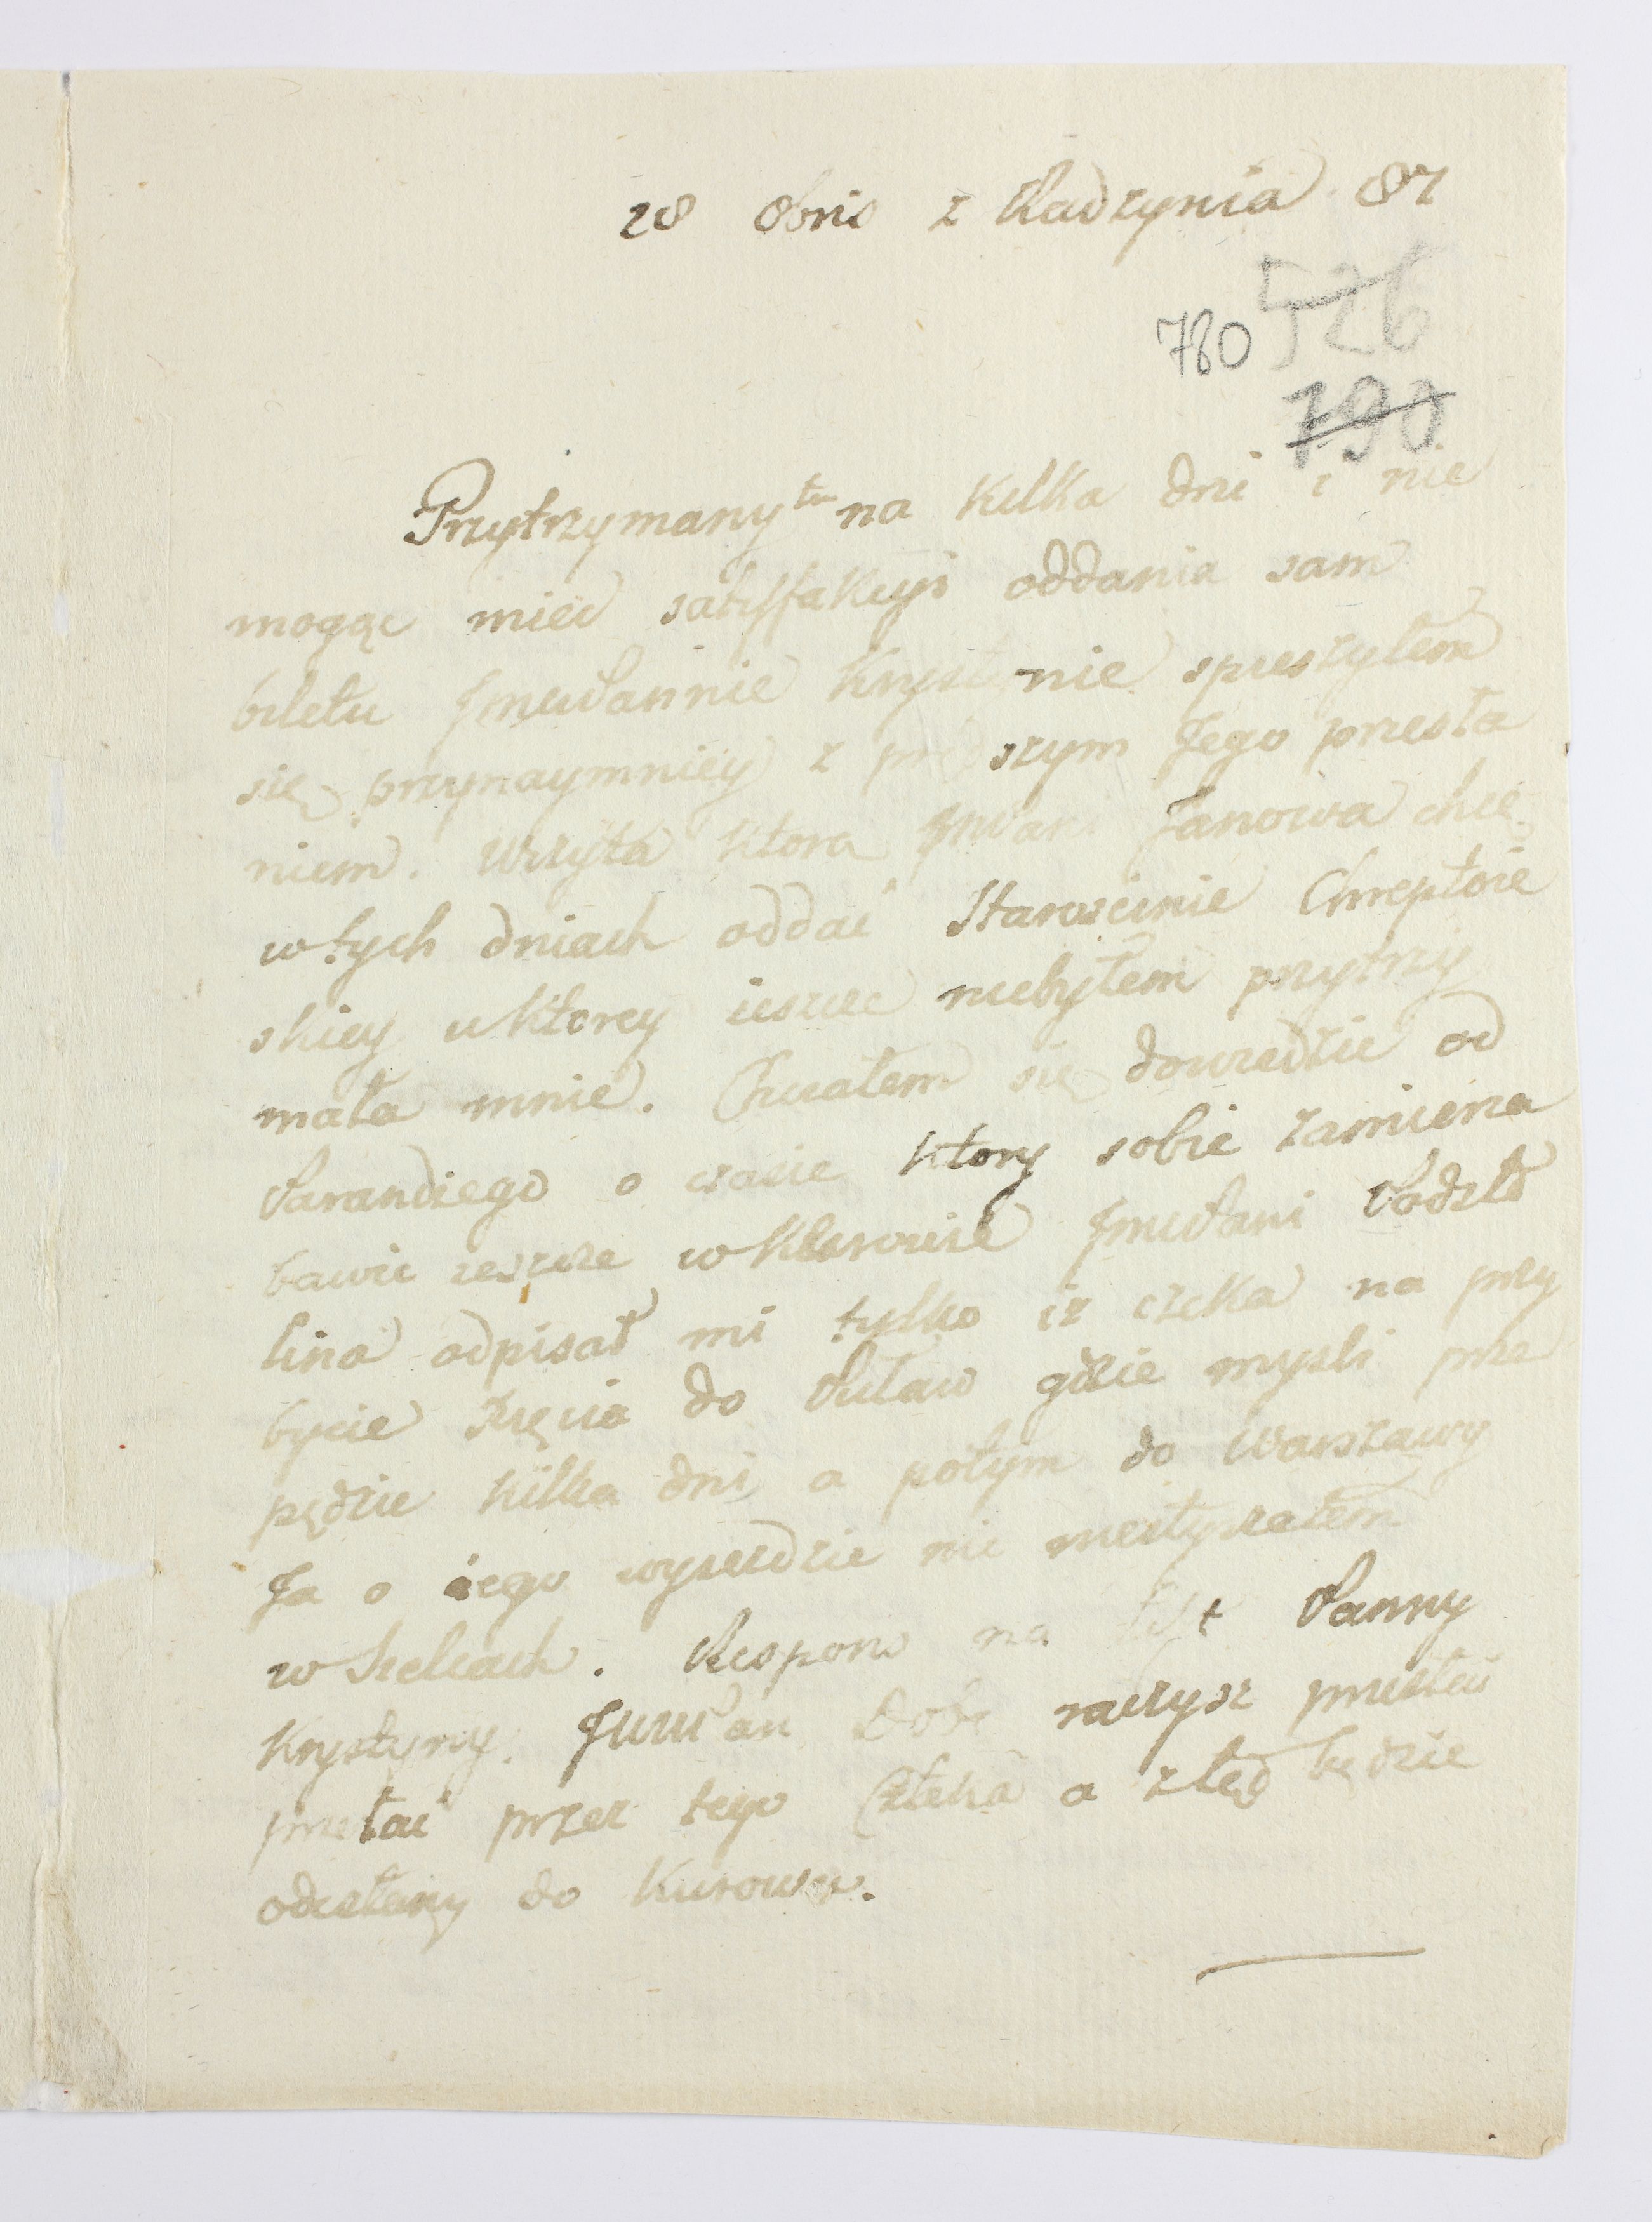 28 8bris z Radzynia 87
526
780
790
Przytrzymany tu na kilka dni i nie
mogąc mieć satysfakcyi oddania sam
biletu JmcPannie Krystynie spieszyłem
się przynaymniey z prszym Jego przesła
niem. Wizyta ktora Janowa chce
w tych dniach oddać Staroscinie Chreptoie
skiey u ktorey ieszcze niebyłem przytrzy
mała mnie. Chciałem się dowiedzie od
Parandiego o czasie ktory sobie zamierza
bawić ieszcze w JmcPani Podsto
lina odpisał mi tylko iz czeka na przy
bycie Xięcia do Puław gdzie mysli prze
pędzic kilka dni a potym do Warszawy
Ja o iego wyiezdzie nic niesłyszałem
w Sielcach. Respons na list Panny
Krystyny. JWWPan Dobr raczysz
przesłać przez tego Człeka a ztąd będzie
odesłany do Kurowa.